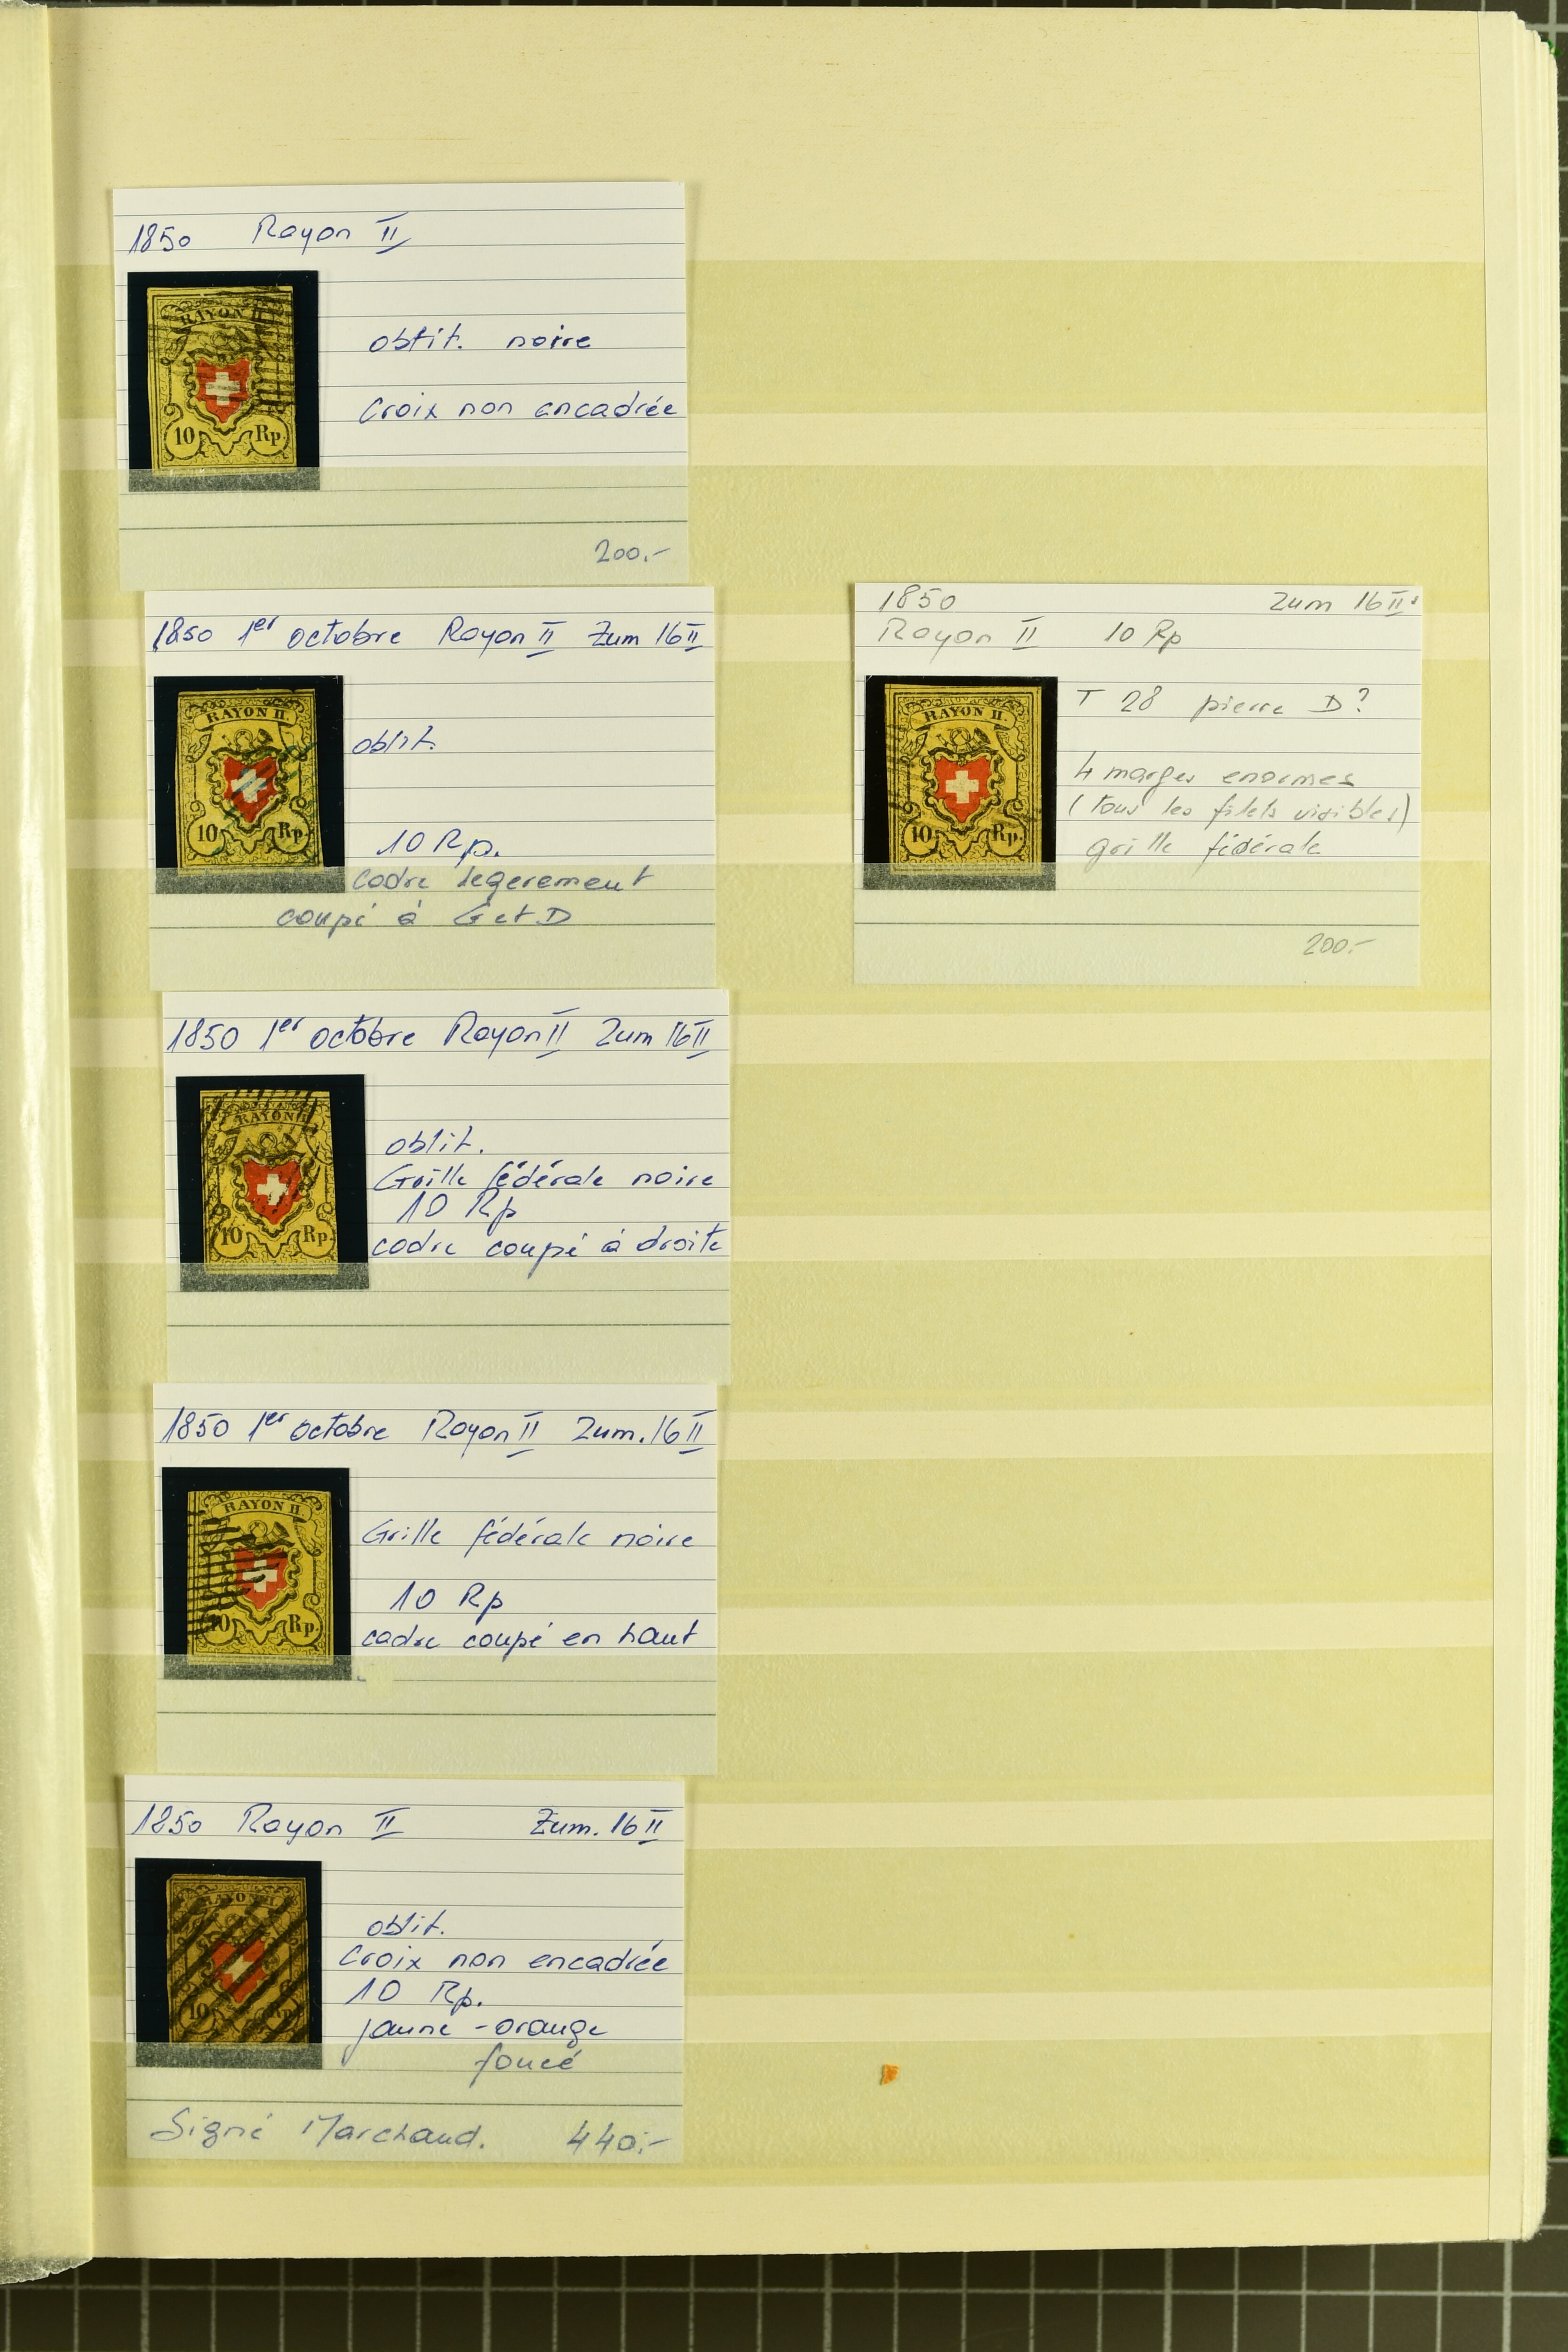 1850 Rayon II
RAYON II.
10 Rp.
oblit. noire
Croix non encadrée
200.-
1850 1er octobre Rayon II Zum 16 II
RAYON II.
10 Rp.
oblit.
10 Rp.
cadre legerement
coupé à G et D
1850 Zum 16 II
Rayon II 10 Rp
RAYON II.
10 Rp.
T 28 pierre D?
4 marges enormes
(tous les filets visibles)
grille fédérale
200.-
1850 1er octobre Rayon II Zum 16 II
RAYON II
10 Rp.
oblit.
Grille fédérale noire
10 Rp
cadre coupé à droite
1850 1er octobre Rayon II Zum. 16 II
RAYON II.
10 Rp.
Grille fédérale noire
10 Rp
cadre coupé en haut
1850 Rayon II Zum. 16 II
RAYON II
10 Rp.
oblit.
Croix non encadrée
10 Rp.
jaune - orange
foncé
Signé Marchand. 440.-